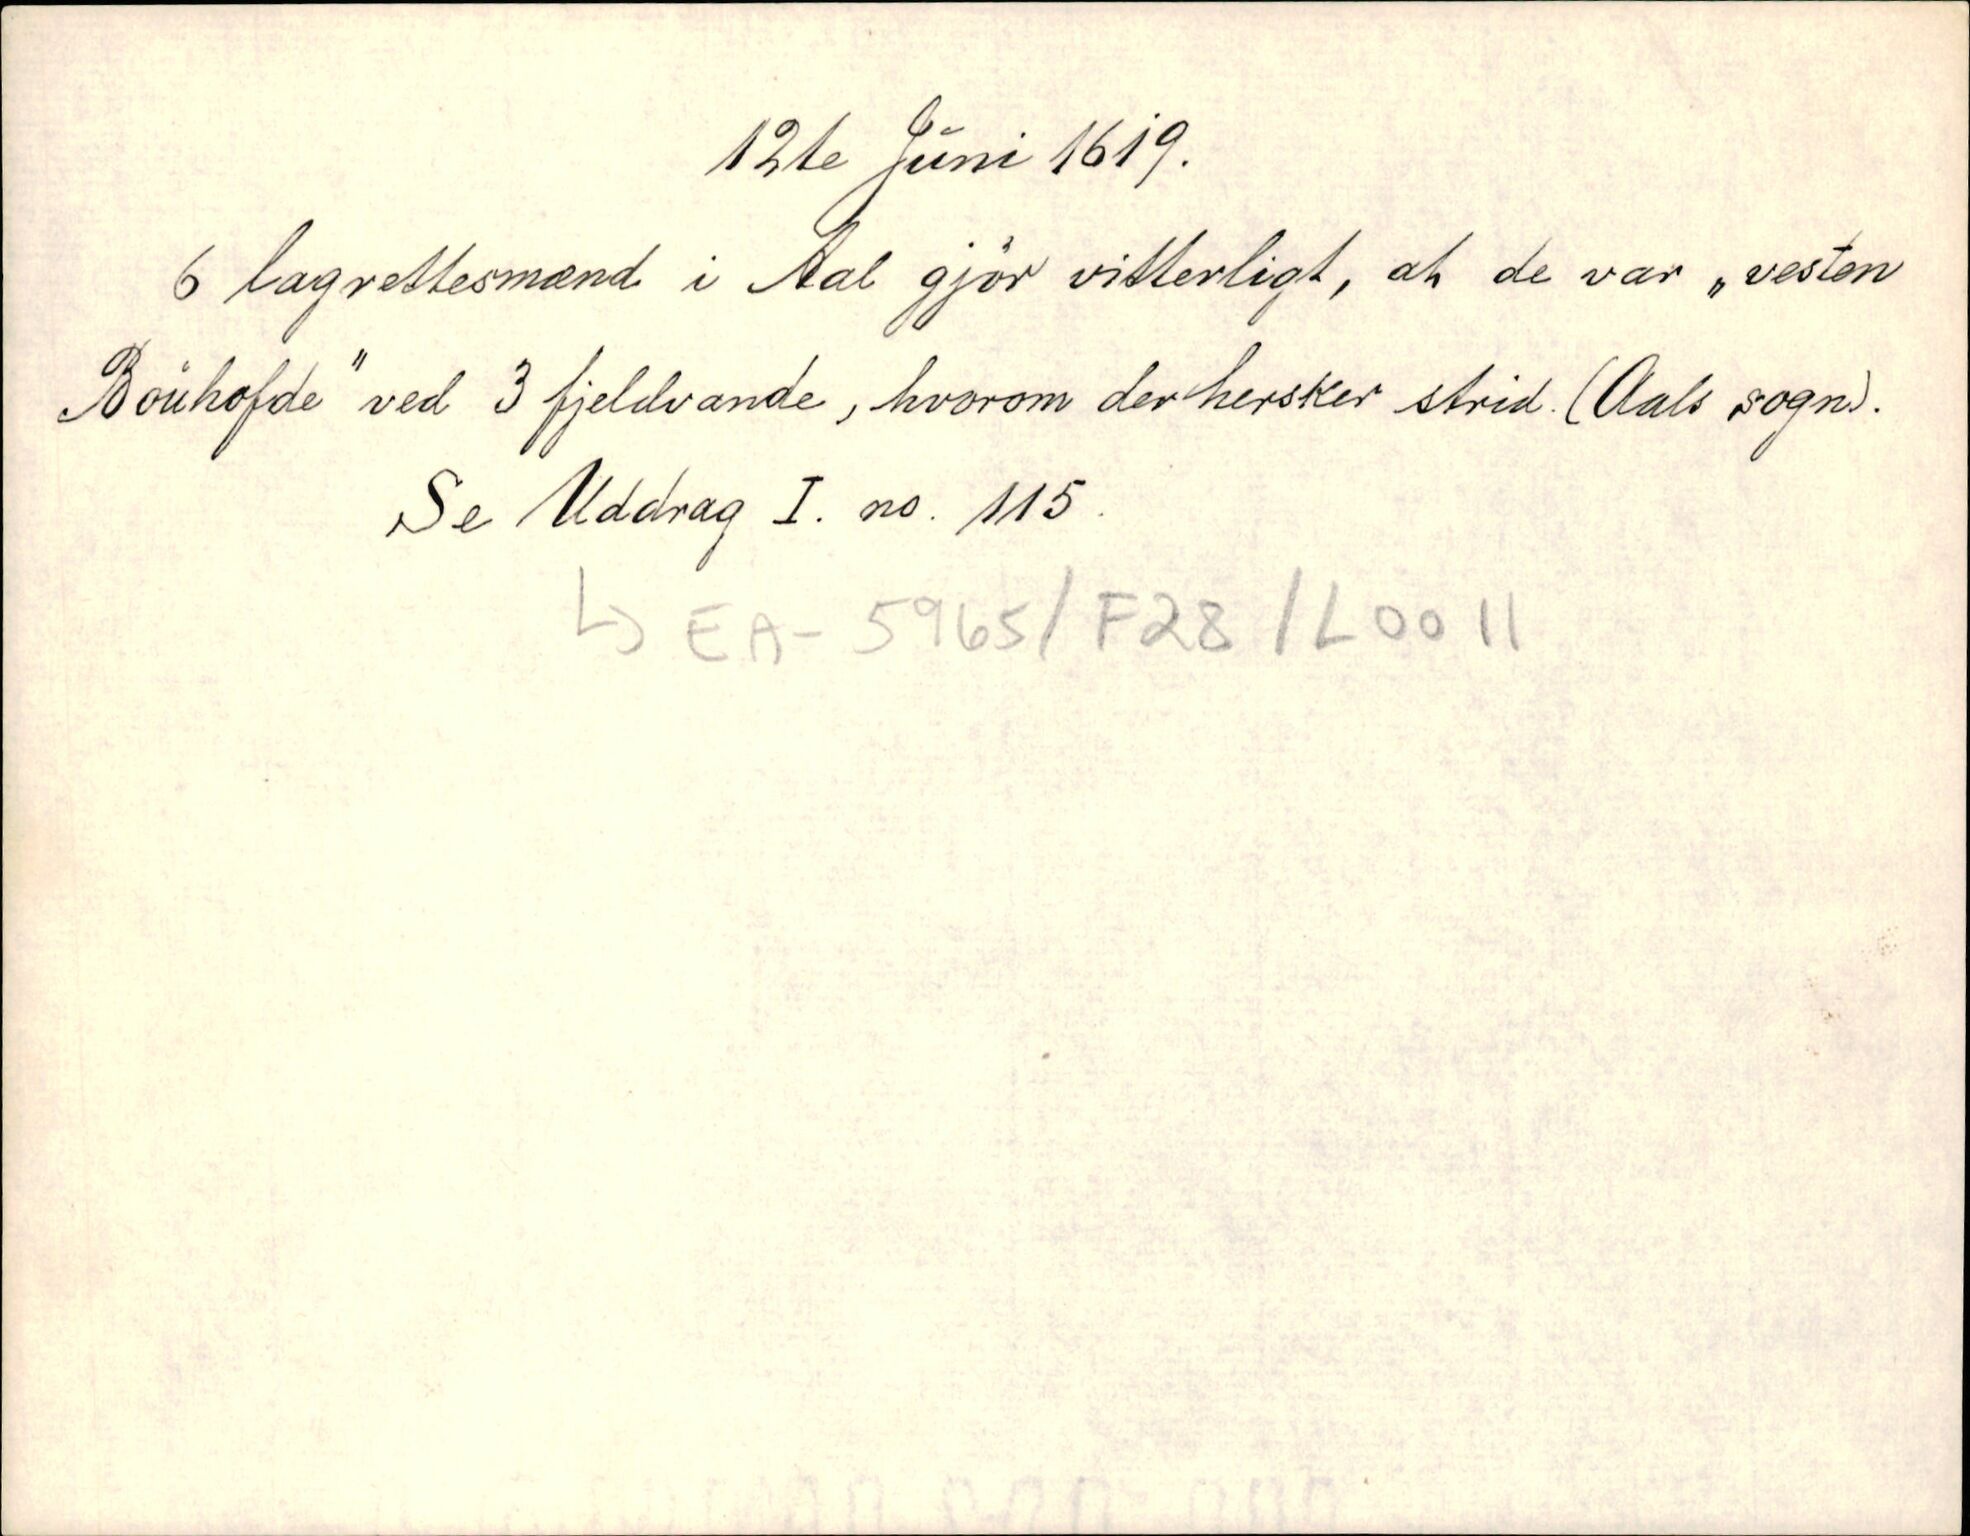 12te Juni 1619.
6 lagrettesmænd i Aal gjör vitterligt, at de var „vesten
Bouhofde" ved 3 fjeldvande, hvorom der hersker strid. (Aals sogn).
Se Uddrag I. no. 115.
↳ EA-5965/F28/L0011